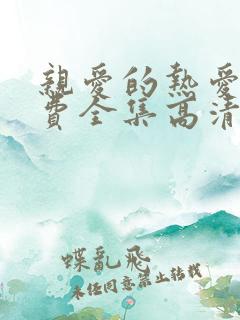 親愛的熱愛
費全集高清
蝶亂飛
未經同意禁止轉載